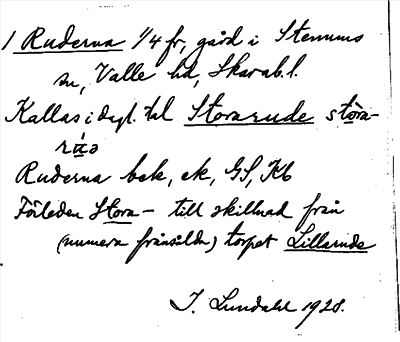 1 Ruderna 1/4 fr, gård i Stenums
sn, Valle hd, Skarab.l.
Kallas i dagl. tal Storarude stòra-
Ruderna bek, ek, GS, Kb
Förleden Stora- till skillnad från
(numera frånsålda) torpet Lillarude
J. Lundahl 1928.